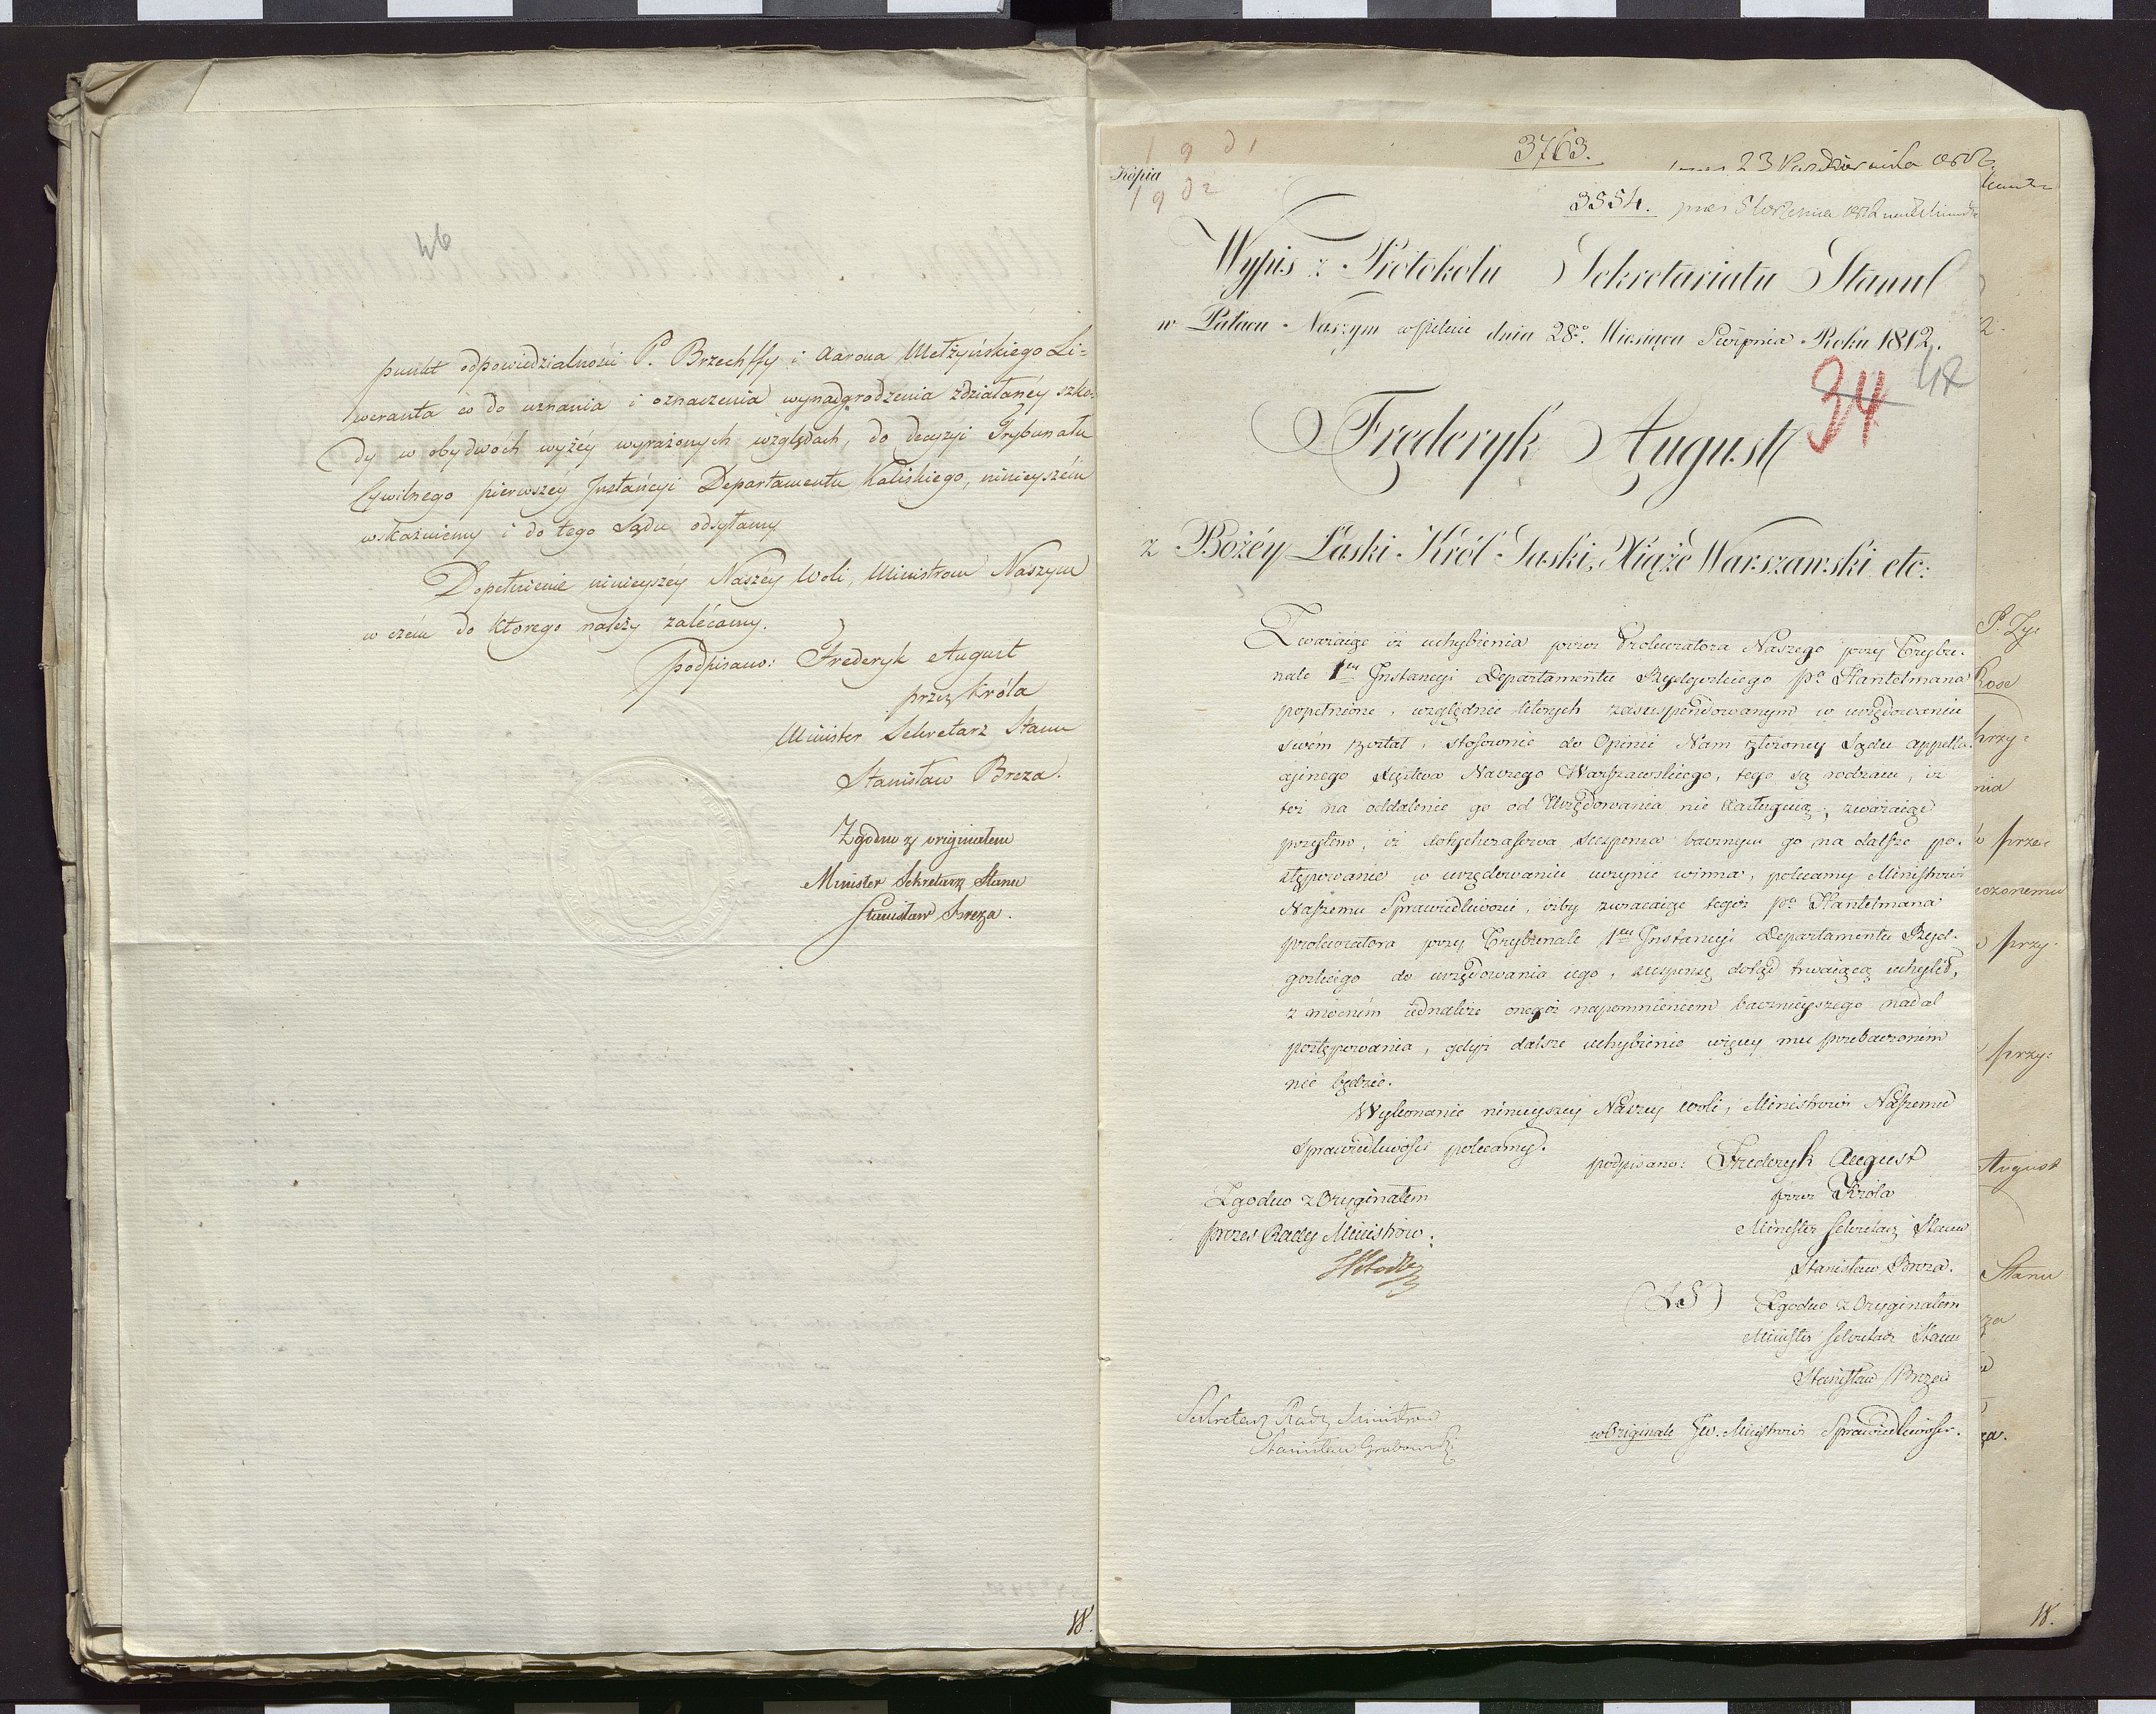 46
punkt odpowiedzialności P. Brzechffy i Aarona Metżyńskiego Li=
weranta co do uznania i oznaczenia wynadgrodzenia zdziałanéy szko-
dy w obydwóch wyżéy wyrażonych względach, do decyzyi Trybunału
Cywilnego pierwszéy Instancyi Departamentu Kaliskiego, ninieyszém
wskazuiemy i do tego Sądu odsyłamy
Dopełnienie ninieyszéy Naszéy Woli, Ministrom Naszym
w czém do którego należy zalécamy.
podpisano: Frederyk August
przez Króla
Minister Sekretarz Stanu
Stanisław Breza.
Zgodno z originałem
Minister Sekretarz Stanu
Stanisław Breza.
18.
3763.
23 Października 1812
Kopia
3554. 
Wypis z Protokolu Sekretariatu Stanu
w Pałacu Naszym w Pilnic dnia 28o. Miesiąca Sierpnia Roku 1812.
34 48
Fryderyk August
z Bożéy Łaski Król Saski, Xiąże Warszawski etc:
Zważaiąc iż uchybienia przez Prokuratora Naszego przy Trybu-
nale 1ey Instancyi Departamentu Bydgoskiego Po Hantelmana
popełnione, względnie których zasuspendowanym w urzędowaniu
swém został, stosownie do Opinii Nam złożoney Sądu appella-
cyinego Xięstwa Naszego Warszawskiego, tego są rodzaiu, iż
też na oddalenie go od Urzędowania nie zasługuią; zważaiąc
przytém, iż dotychczasowa suspensa bacznym go na dalsze po-
stępowanie w urzędowaniu uczynić winna, polecamy Ministrowi
Naszemu Sprawiedliwości, iżby zwracaiąc tegoż Po Hantelmana
prokuratora przy Trybunale 1ey Instancyi Departamentu Byd-
goskiego do urzędowania iego, suspensę dotąd trwaiącą uchylił,
z mocném iednakże onegoż napomnieniem bacznieyszego nadal
postępowania, gdyż dalsze uchybienie więcey mu przebaczoném
nie będzie.
Wykonanie ninieyszey Naszey woli, Ministrowi Naszemu
Sprawiedliwości polecamy.
podpisano: Frederyk August
przez Króla
Minister Sekretarz Stanu
Stanisław Breza.
(LS) Zgodno z Oryginałem
Minister Sekretarz Stanu
Stanisław Breza
Zgodno z Oryginałem
Prezes Rady Ministrów.
Sekretarz Rady Ministrów
Stanisław Grabowski
w Originale Jw. Ministrowi Sprawiedliwości.
przy-
eczonemu
przy-
przy:
August
Stanu
18.